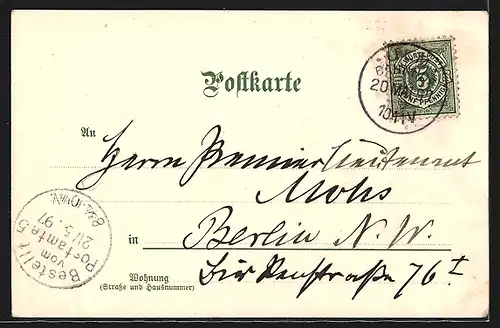 Postkarte
5
20
10-11V
An
Herrn Premierlieutenant
Mohs
in Berlin N.W.
Wohnung
(Straße und Hausnummer)
76 I
Bestellt
vom
Postamte 5
21/5.97